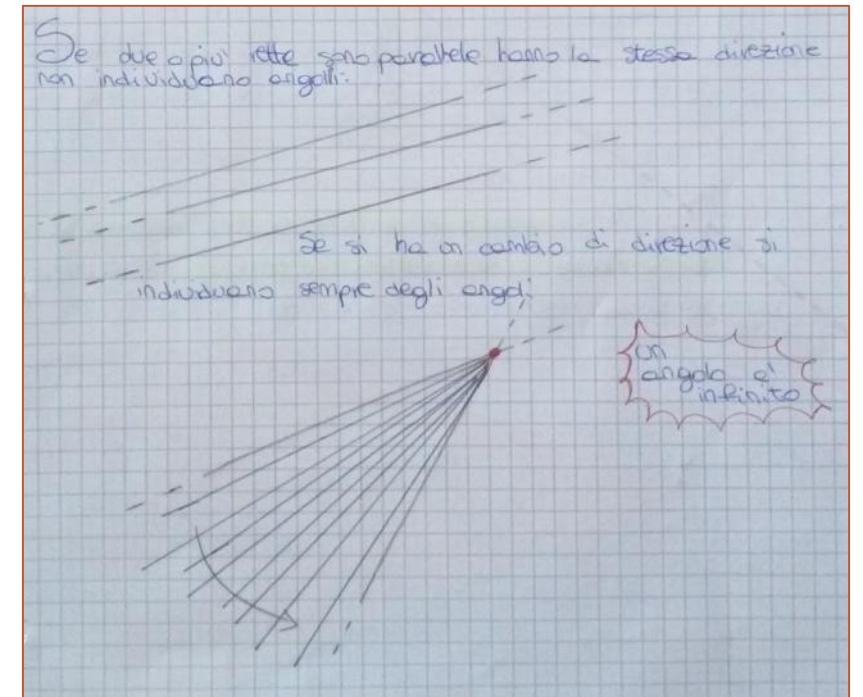 Se due o più rette sono parallele hanno la stessa direzione
non individuano angoli:
Se si ha un cambio di direzione si
individuano sempre degli angoli
un
angolo e'
infinito